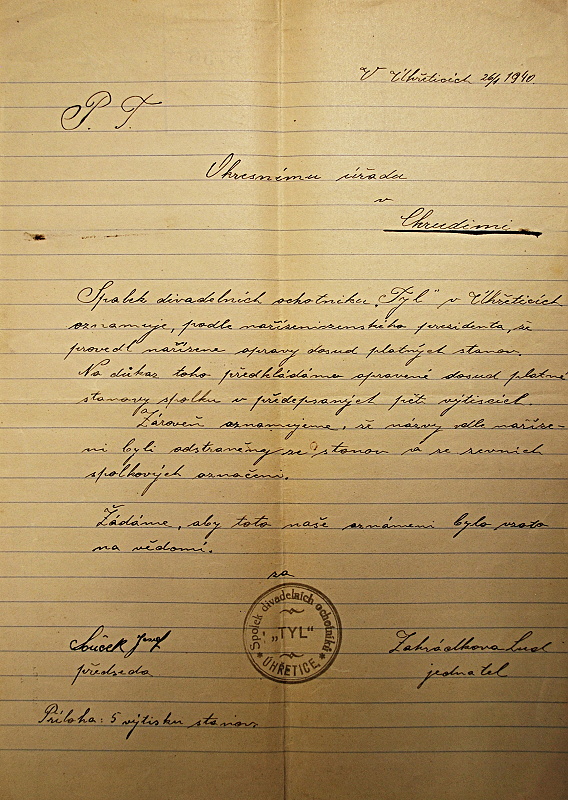 V Úhřeticích 26/1 1940.
P. T.
Okresnímu úřadu
v
Chrudimi
Spolek divadelních ochotníku „Tyl“ v Úhřeticích
oznamuje, podle nařízení zemského presidenta, že
provedl nařízene opravy dosud platných stanov.
Na důkaz toho předkládáme opravené dosud platné
stanovy spolku v předepsaných pěti výtiscích.
Zároveň oznamujeme, že názvy vdle naříze-
ni byli odstraněny ze stanov a se zevních
spolkových označení.
Žádáme, aby toto naše oznámeni bylo vzato
na vědomí.
za
Spolek divadelních ochotníků
„TYL“
ÚHŘETICE.
Souček Josef
předseda
Zahrádkova Lud
jednatel
Příloha: 5 výtisku stanov.